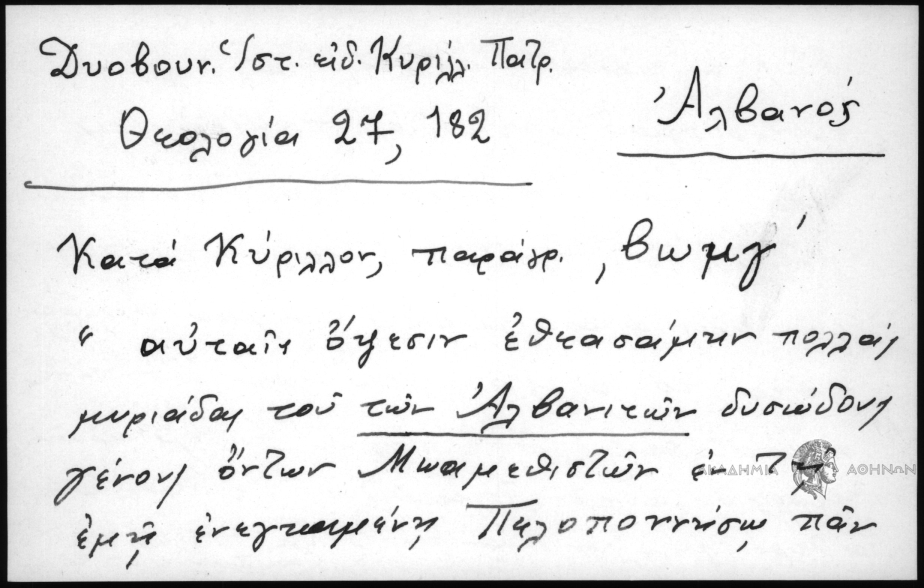 Δυοβουν. Ἱστ. εἰδ. Κυρίλλ. Πατρ.
Θεολογία 27, 182
Ἀλβανός
Κατά Κύριλλον, παράγρ. ,βωμγ´
“ αὐταῖς ὄψεσιν ἐθεασάμην πολλάς
μυριάδας τοῦ τῶν Ἀλβανιτῶν δυσώδους
γένους ὄντων Μωαμεθιστῶν ἐν τῇ
ἐμῇ ἐνεγκαμένῃ Πελοποννήσῳ πᾶν
ΑΚΑΔΗΜΙΑ ΑΘΗΝΩΝ